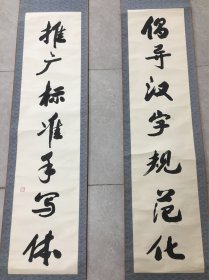 倡导汉字规范化
推广标准手写体